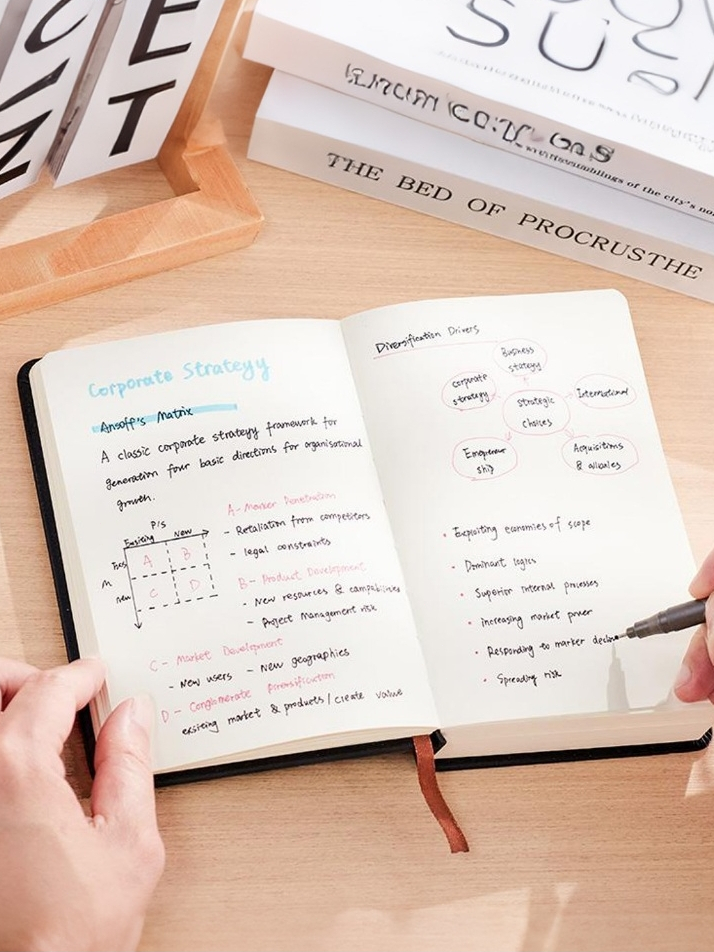 C E
Z T
SU
THE BED OF PROCRUSTHE
Corporate Strategyy
Ansoff's Matrix
A classic corporate strategyy framework for
generation four basic directions for organisational
growth.
P/S
Exsiting New
A B
M
New C D
A - Marker Penetration
- Retaliation from competitors
- legal constraints
B - Product Development
- New resources & campabilities
- Project Management risk
C - Market Development
- New users - New geographies
D - Conglomerate Diversification
exsiting market & products / create value
Diversification Drivers
Business
stategy
corporate
strategyy
International
Strategic
choices
ship
Acquisitions
&
• Exploiting economies of scope
• Dominant logics
• Superior internal processes
• increasing market power
• Responding to marker decline
• Spreading risk